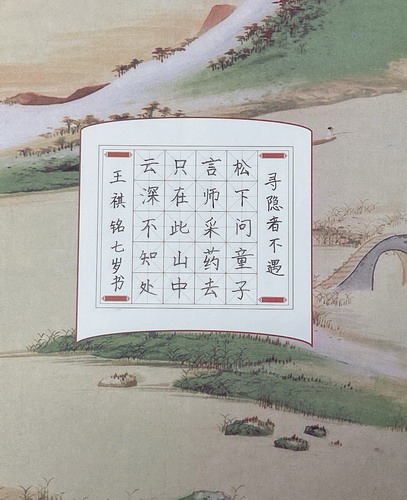 寻隐者不遇
松下问童子
言师采药去
只在此山中
云深不知处
王祺铭七岁书